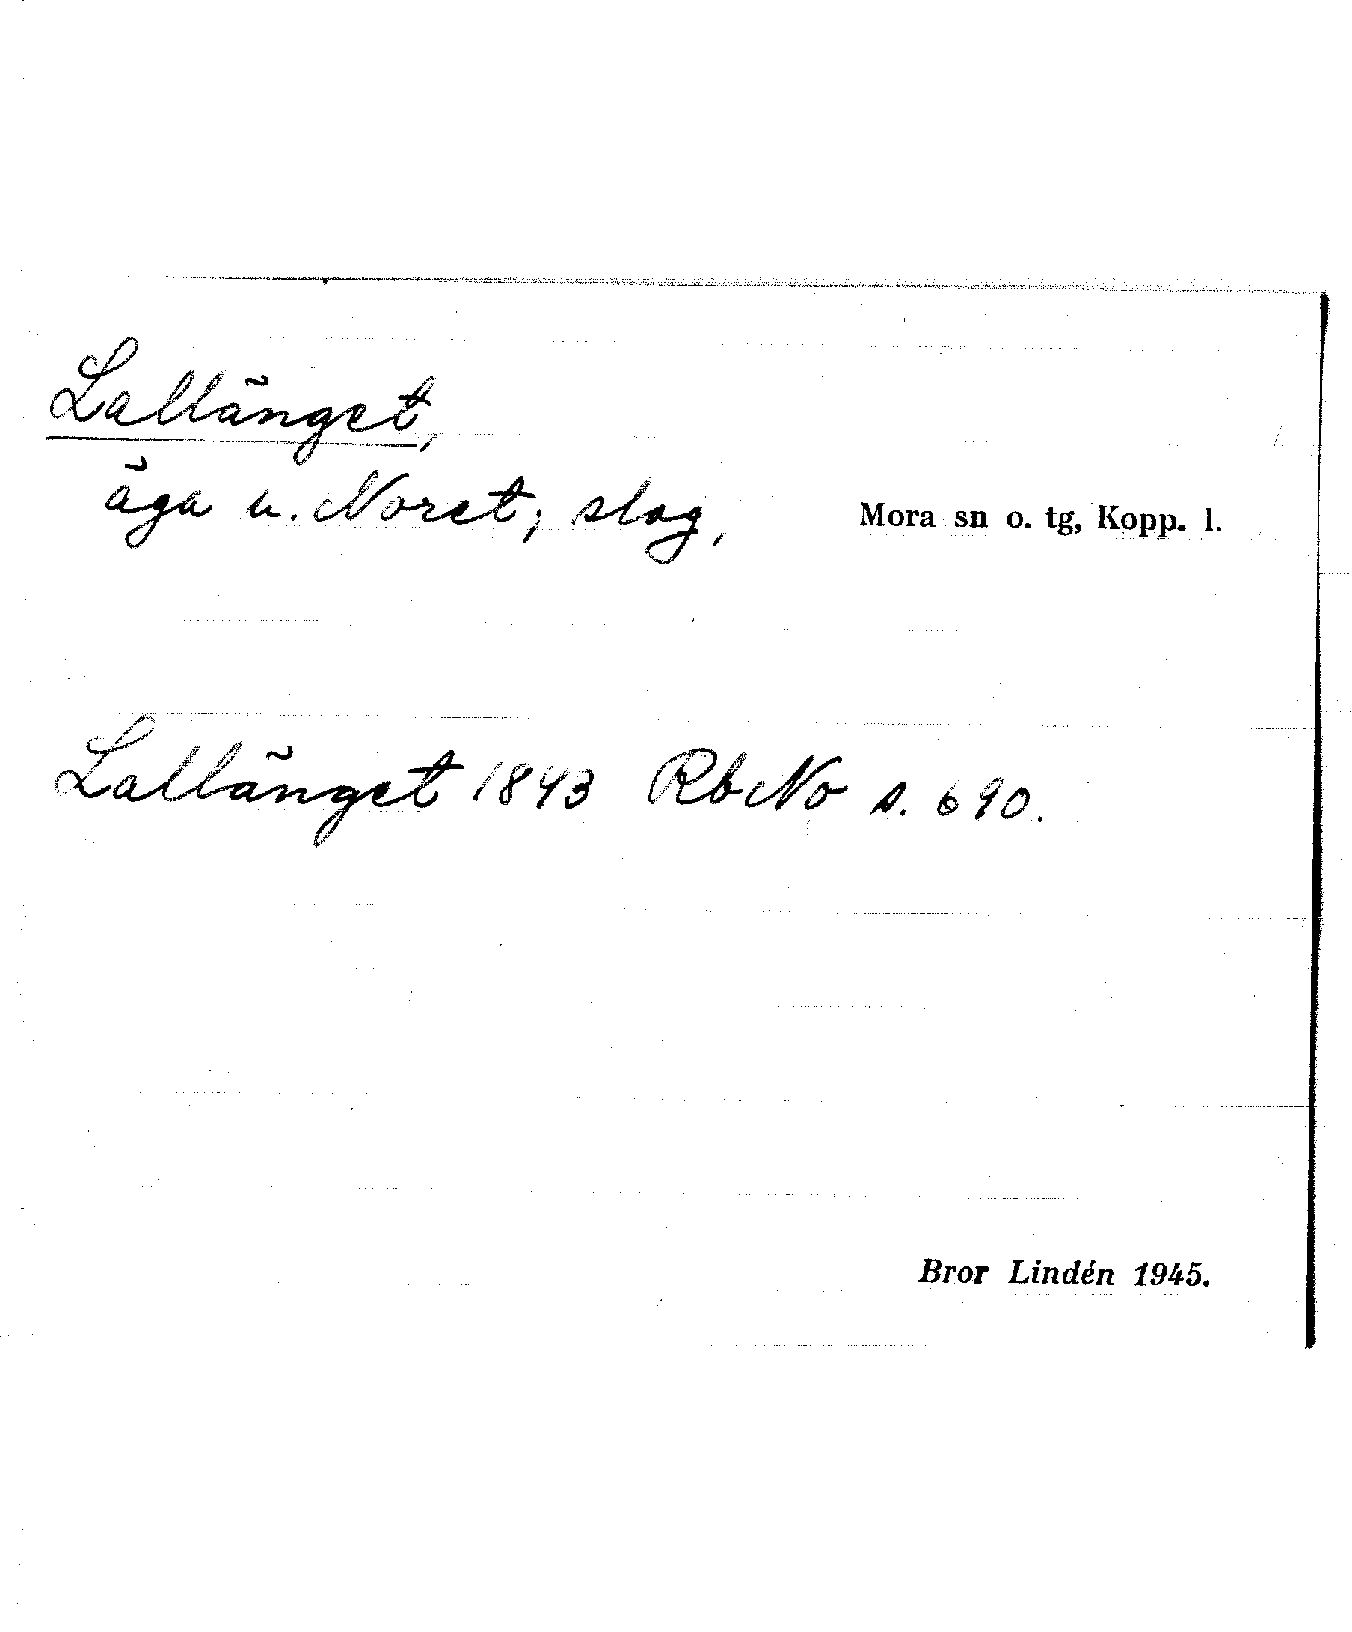 Lallänget,
äga u. Noret; slog, Mora sn o. tg, Kopp. l.
Lallänget 1843 Rb No s. 690.
Bror Lindén 1945.